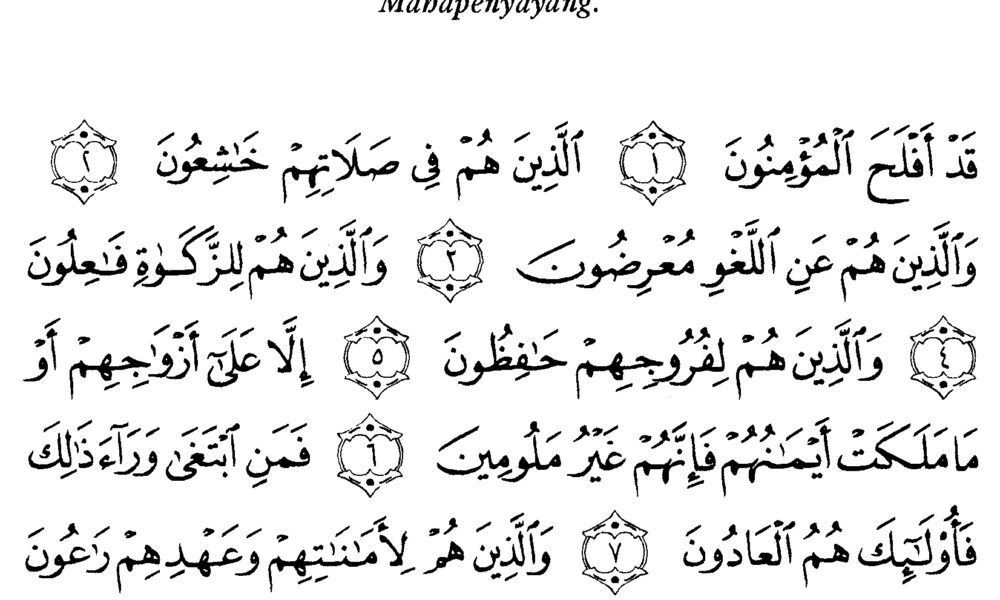 Mahapenyayang.
قَدْ أَفْلَحَ ٱلْمُؤْمِنُونَ ١ ٱلَّذِينَ هُمْ فِى صَلَاتِهِمْ خَٰشِعُونَ ٢
وَٱلَّذِينَ هُمْ عَنِ ٱللَّغْوِ مُعْرِضُونَ ٣ وَٱلَّذِينَ هُمْ لِلزَّكَوٰةِ فَٰعِلُونَ
٤ وَٱلَّذِينَ هُمْ لِفُرُوجِهِمْ حَٰفِظُونَ ٥ إِلَّا عَلَىٰٓ أَزْوَٰجِهِمْ أَوْ
مَا مَلَكَتْ أَيْمَٰنُهُمْ فَإِنَّهُمْ غَيْرُ مَلُومِينَ ٦ فَمَنِ ٱبْتَغَىٰ وَرَآءَ ذَٰلِكَ
فَأُو۟لَٰٓئِكَ هُمُ ٱلْعَادُونَ ٧ وَٱلَّذِينَ هُمْ لِأَمَٰنَٰتِهِمْ وَعَهْدِهِمْ رَٰعُونَ